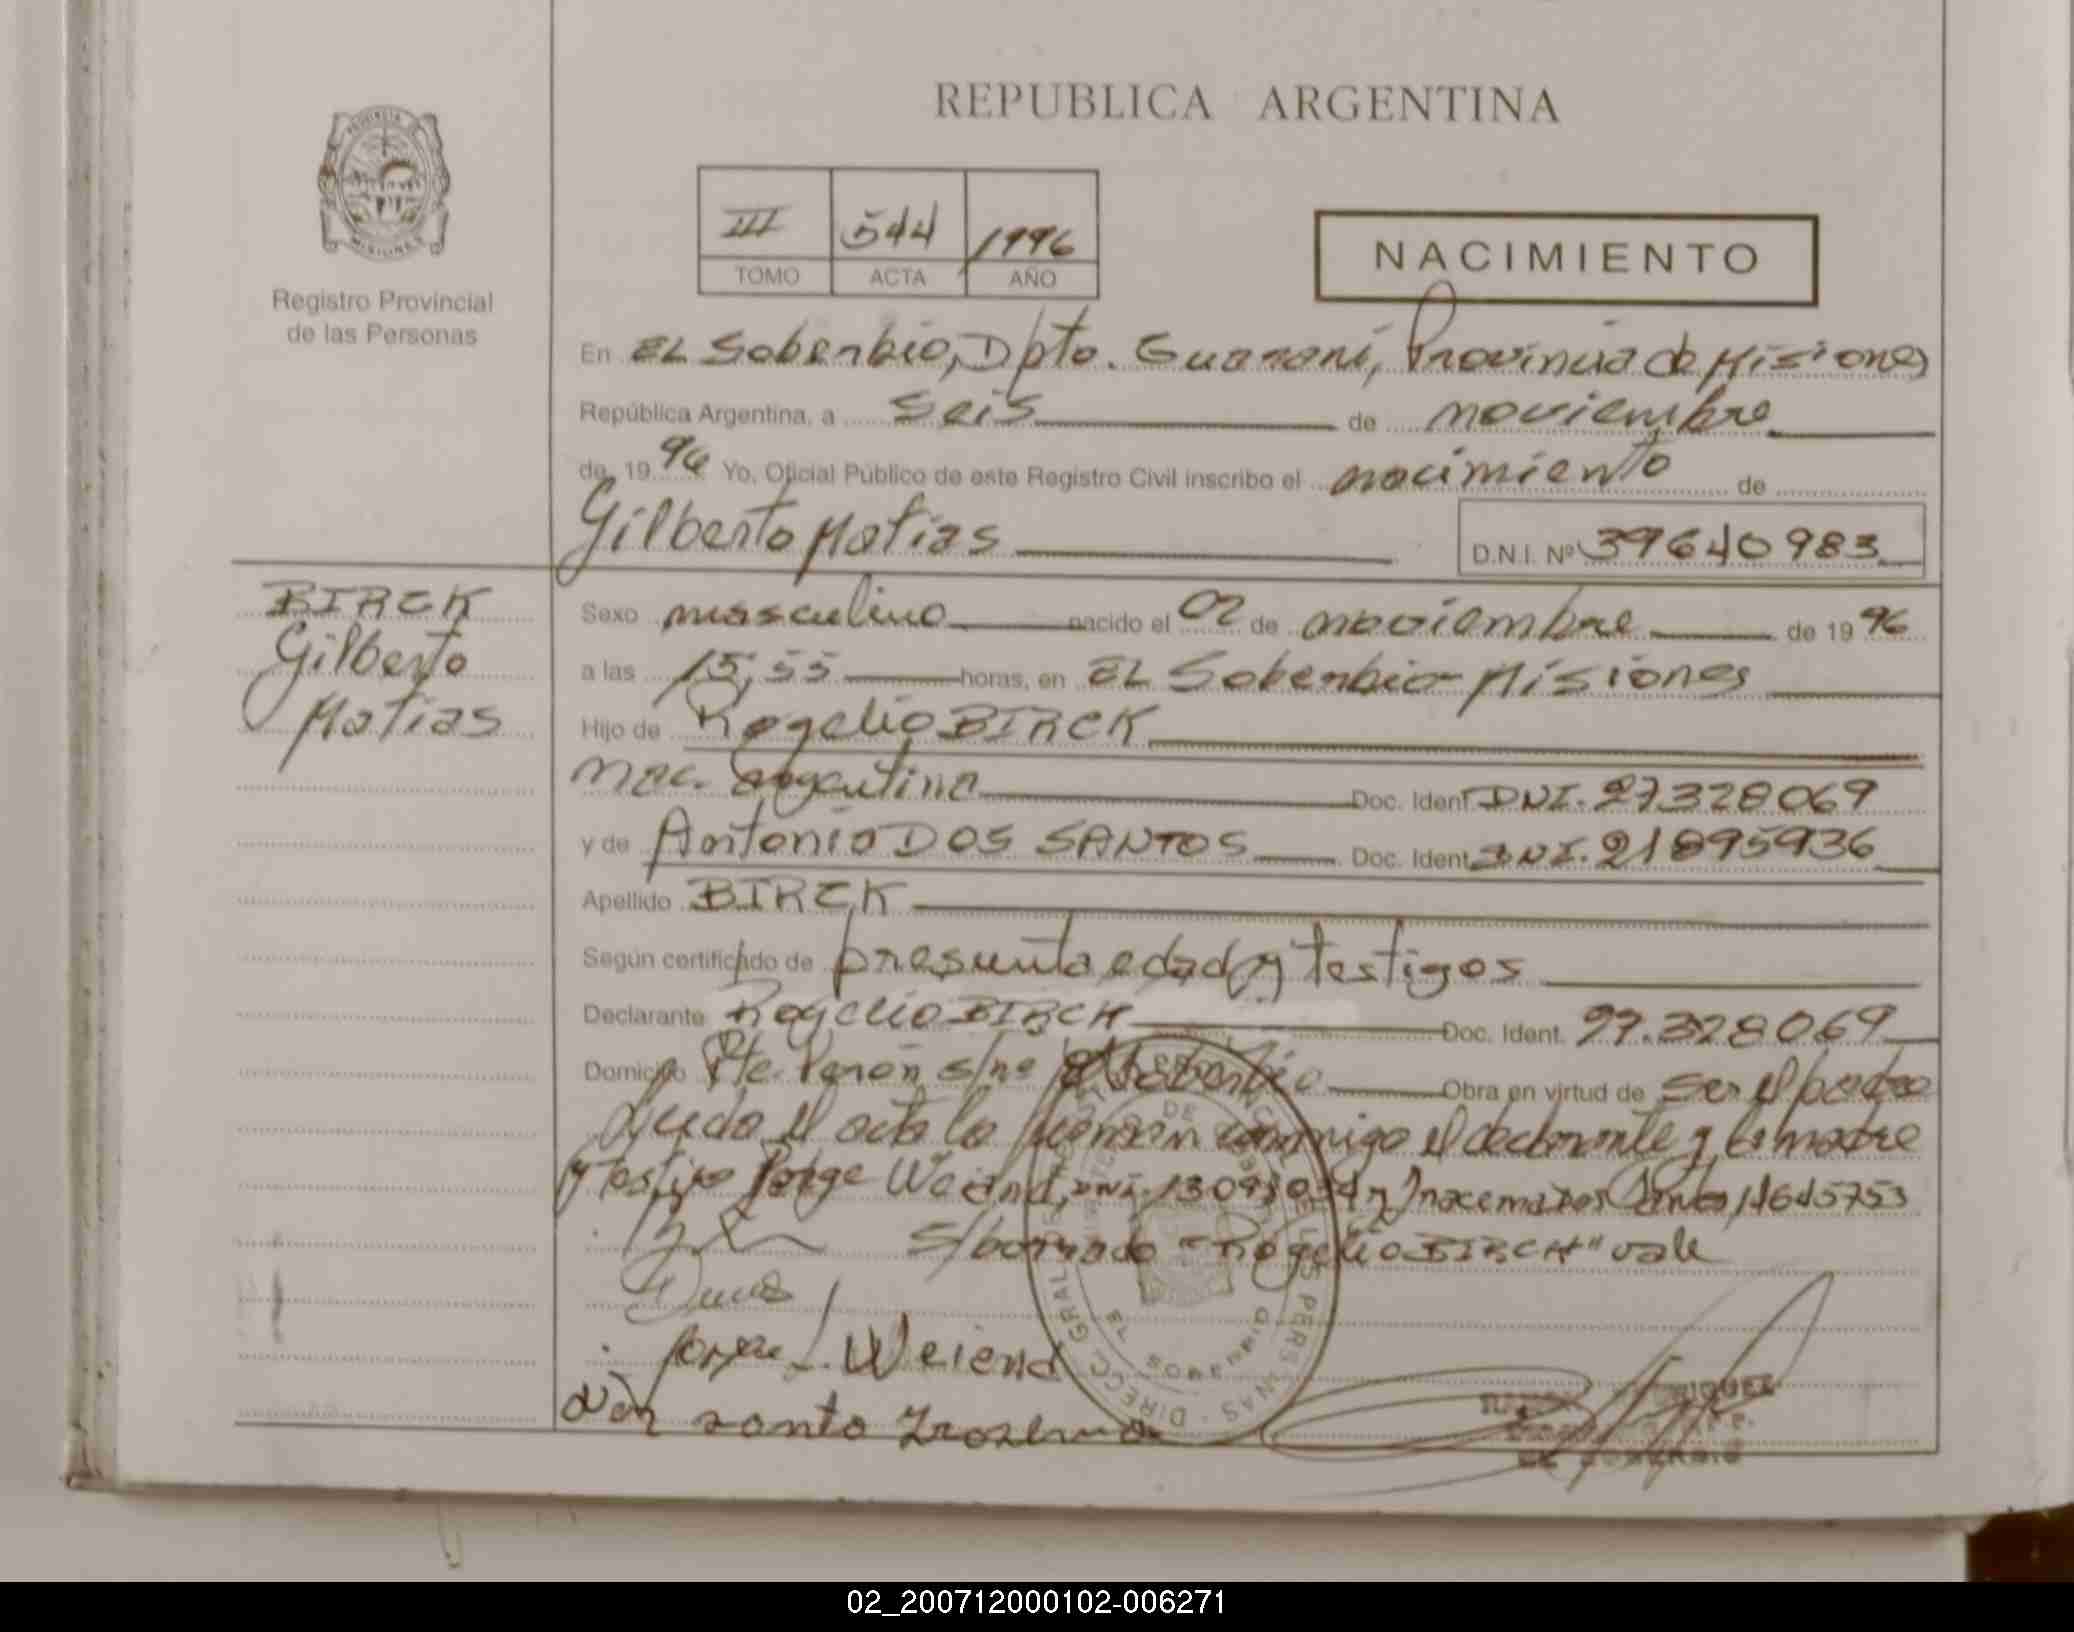 REPUBLICA ARGENTINA
PROVINCIA DE
MISIONES
Registro Provincial
de las Personas
III 544 1996
TOMO ACTA AÑO
NACIMIENTO
En EL Soberbio, Dpto. Guaraní, Provincia de Misiones
República Argentina, a seis de noviembre
de 1996 Yo, Oficial Público de este Registro Civil inscribo el nacimiento de
Gilberto Matias D.N.I. Nº 39640983
BIRCK
Gilberto
Matias
Sexo masculino nacido el 02 de noviembre de 1996
a las 15,55 horas, en EL Soberbio-Misiones
Hijo de Rogelio BIRCK
nac. argentina Doc. Ident. DNI. 27328069
y de Antonia DOS SANTOS Doc. Ident. DNI. 21895936
Apellido BIRCK
Según certificado de presunta edad y testigos
Declarante Rogelio BIRCK Doc. Ident. 27.328069
Domicilio Pte. Perón s/nº El Soberbio Obra en virtud de ser el padre
Leída el acta la firman conmigo el declarante y la madre
y testigo Jorge Weiend, DNI. y dos Santos 14645753
S/borrado "Rogelio BIRCK" vale
Jorge L. Weiend
dos santo
EL SOBERBIO